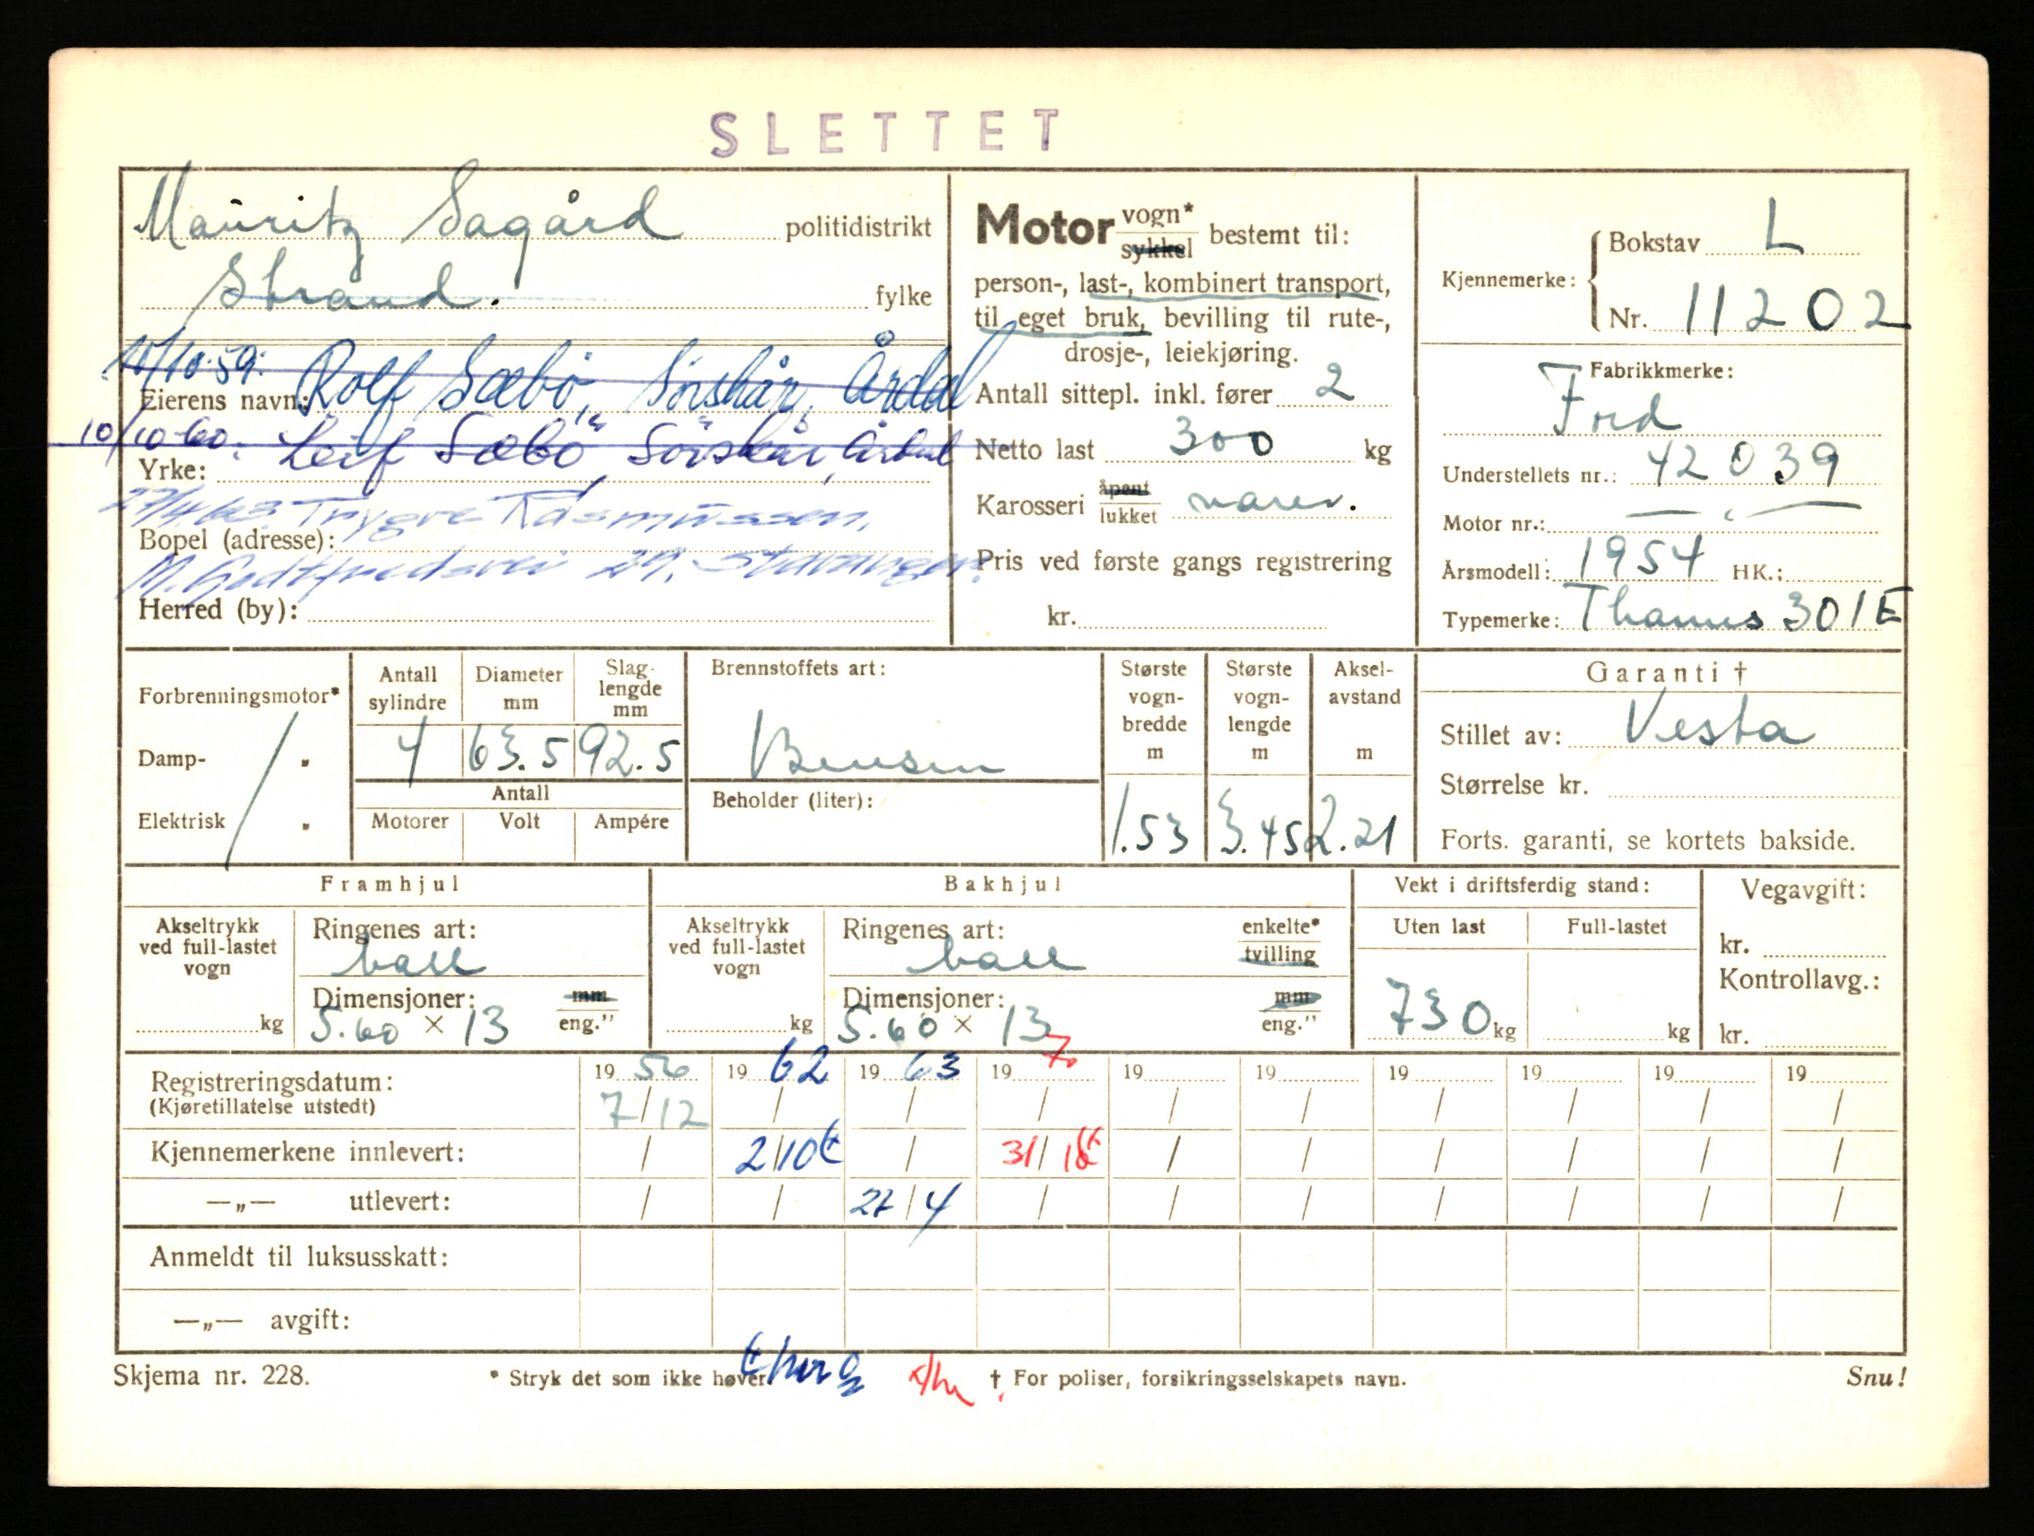 SLETTET
Mauritz Sagård politidistrikt
Strand. fylke
10.59. Rolf Sæbö, Sörskår, Årdal
Eierens navn:
10/10-60. Leif Sæbö, Sörskår, Årdal
Yrke:
27/4.63. Trygve Rasmussen,
Bopel (adresse):
M. Godtfredsvei 29, Stavanger.
Herred (by):
Motor vogn* sykkel bestemt til:
person-, last-, kombinert transport,
til eget bruk, bevilling til rute-,
drosje-, leiekjøring.
Antall sittepl. inkl. fører 2
Netto last 300 kg
Karosseri åpent lukket varev.
Pris ved første gangs registrering
kr.
Kjennemerke: Bokstav L
Nr. 11202
Fabrikkmerke:
Ford
Understellets nr.: 42039
Motor nr.: — " —
Årsmodell: 1954 HK.:
Typemerke: Thames 301E
Forbrenningsmotor*
Damp- "
Elektrisk "
Antall sylindre 4
Diameter mm 63.5
Slaglengde mm 92.5
Antall
Motorer Volt Ampére
Brennstoffets art:
Bensin
Beholder (liter):
Største vogn-bredde m 1.53
Største vogn-lengde m 3.45
Aksel-avstand m 2.21
Garanti †
Stillet av: Vesta
Størrelse kr.
Forts. garanti, se kortets bakside.
Framhjul
Akseltrykk ved full-lastet vogn kg
Ringenes art:
ball
Dimensjoner: mm
5.60 × 13 eng."
Bakhjul
Akseltrykk ved full-lastet vogn kg
Ringenes art: enkelte*
ball tvilling
Dimensjoner: mm
5.60 × 13 eng."
Vekt i driftsferdig stand:
Uten last Full-lastet
730 kg kg
Vegavgift:
kr.
Kontrollavg.:
kr.
Registreringsdatum: 19 56 19 62 19 63 19 70 19 19 19 19 19 19
(Kjøretillatelse utstedt) 7/12 / / / / / / / / /
Kjennemerkene innlevert: / 2/10 / 31/ / / / / / /
—„— utlevert: / / 27/4 / / / / / / /
Anmeldt til luksusskatt:
—„— avgift:
Skjema nr. 228. * Stryk det som ikke høver † For poliser, forsikringsselskapets navn. Snu!